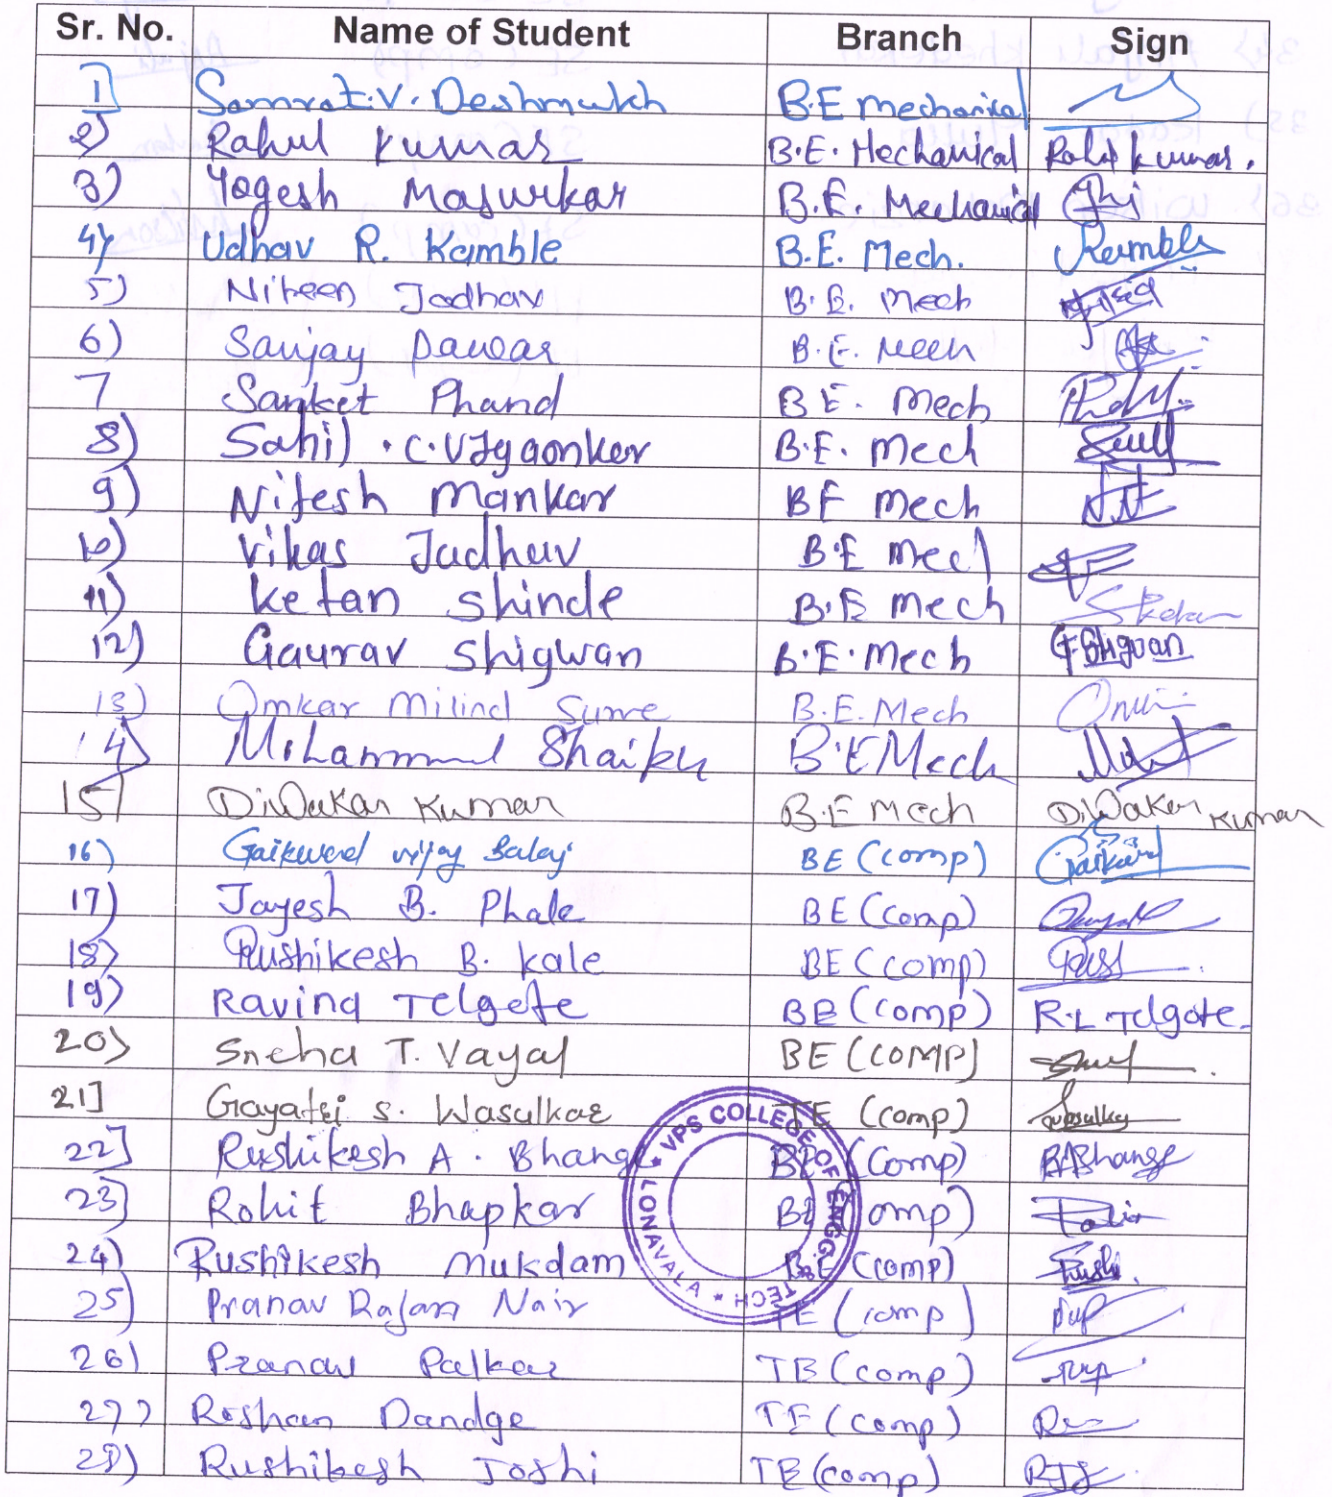 Sr. No. Name of Student Branch Sign
1] Samrat.V. Deshmukh B.E mechanical
2) Rahul Kumar B.E. Mechanical Rahul kumar.
3) Yogesh Masurkar B.E. Mechanical
4) Udhav R. Kamble B.E. Mech. Kamble
5) Niteen Jadhav B.E. mech
6) Sanjay Pawar B.E. Mech
7 Sanket Phand BE. mech
8) Sahil .C. Uygaonker B.E. mech
9) Nitesh Mankar BE mech
10) Vikas Jadhav B.E mech
11) Ketan Shinde B.E mech
12) Gaurav Shigwan B.E.mech G.Shigwan
13) Omkar Milind Surve B.E.Mech
14) Mohammed Shaikh B.E Mech
15) Diwakar Kumar B.E mech Diwakar Kumar
16) Gaikwad vijay Balaji BE (comp) Gaikwad
17) Jayesh B. Phale BE (comp)
18) Rushikesh B. kale BE (comp)
19) Ravina Telgote BE (comp) R.L Telgote.
20) Sneha T. Vayal BE (COMP)
21] Gayatri s. Wasulkar TE (comp)
22] Rushikesh A. Bhange BE (Comp) RABhange
23) Rohit Bhapkar BE (comp)
24) Rushikesh Mukdam B.E (comp) Rushi.
25) Pranav Rajan Nair TE (comp)
26) Pranav Palkar TE (comp)
27) Roshan Dandge TE (comp)
28) Rushikesh Joshi TE (comp)
VPS COLLEGE OF ENGG. & TECH * LONAVALA *